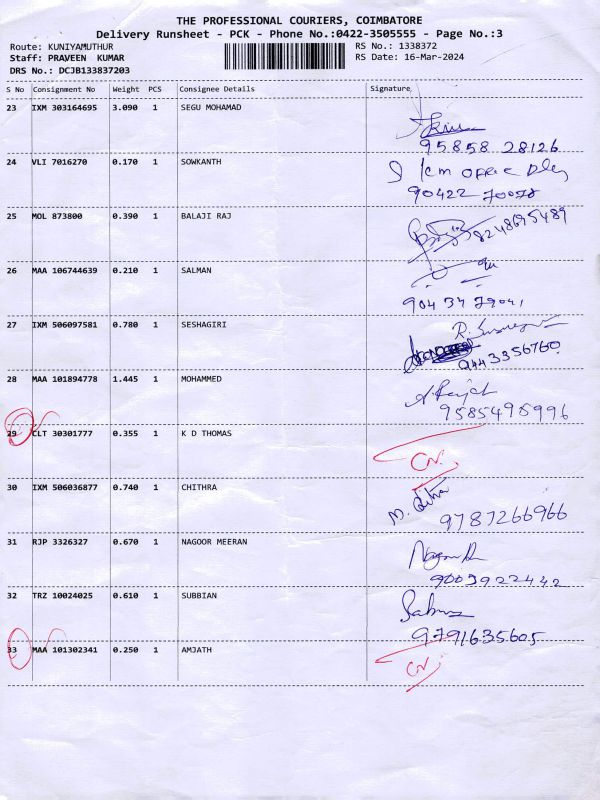 THE PROFESSIONAL COURIERS, COIMBATORE
Delivery Runsheet - PCK - Phone No.:0422-3505555 - Page No.:3
Route: KUNIYAMUTHUR RS No.: 1338372
Staff: PRAVEEN KUMAR RS Date: 16-Mar-2024
DRS No.: DCJB133837203
S No Consignment No Weight PCS Consignee Details Signature
23 IXM 303164695 3.090 1 SEGU MOHAMAD
95858 28126
24 VLI 7016270 0.170 1 SOWKANTH
OFFice
90422 70078
25 MOL 873800 0.390 1 BALAJI RAJ
8248695489
26 MAA 106744639 0.210 1 SALMAN
904 34 79041
27 IXM 506097581 0.780 1 SESHAGIRI
9443356760
28 MAA 101894778 1.445 1 MOHAMMED
9585495996
29 CLT 30301777 0.355 1 K D THOMAS
CN.
30 IXM 506036877 0.740 1 CHITHRA
9787266966
31 RJP 3326327 0.670 1 NAGOOR MEERAN
9003922442
32 TRZ 10024025 0.610 1 SUBBIAN
9791635605
33 MAA 101302341 0.250 1 AMJATH
CN.